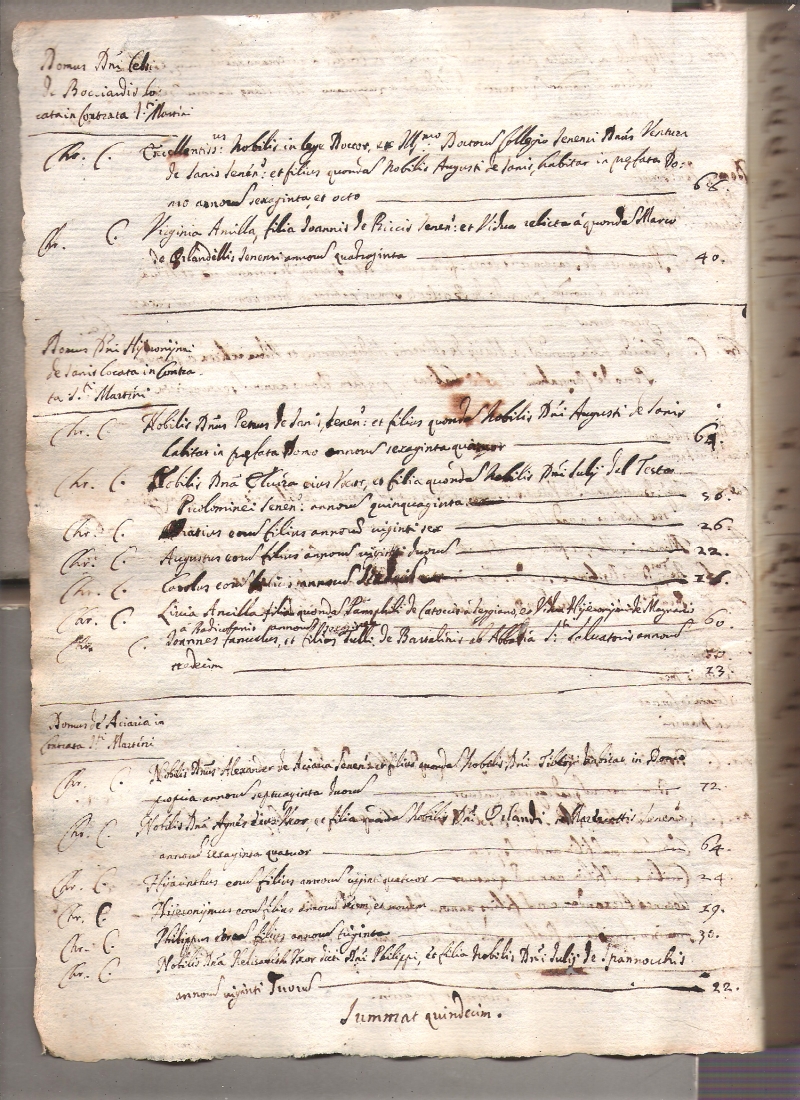 Domus Dni Celsi
de Bocciardis lo-
cata in Contrata Sti Martini
Chr. C. Excellentissus: Nobilis in lege Doctor, et Illmo Doctorum Collegio Senensi Dnus Ventura
de Sanis Senens: et filius quondam Nobilis Augusti de Sanis, habitat in prefata Do:
mo annorum sexaginta, et octo 68.
Chr. C. Virginia Ancilla, filia Joannis de Riccis Senens: et Vidua relicta a quondam Marco
de Orlandellis Senensi annorum quadraginta 40.
Domus Dni Hyeronijmi
de Sanis locata in Contra-
ta Sti Martini
Chr. C. Nobilis Dnus Petrus de Sanis, Senens: et filius quondam Nobilis Dni Augusti de Sanis
habitat in prefata Domo annorum sexaginta quatuor 64.
Chr. C. Nobilis Dna uxor, et filia quondam Nobilis Dni Iulij del Testa
Picolominei Senens: annorum quinquaginta 56.
Chr. C. Horatius eorum filius annorum viginti sex 26.
Chr. C. Augustus eorum filius annorum viginti duorum 22.
Chr. C. Carolus eorum filius annorum
Chr. C. Livia Ancilla filia quondam Pamphili de et Vidua Hijeronijmi de Magnanis
a Radicofano annorum sexaginta 60
Chr. C. Joannes famulus, et filius Tullij de Bartalinis ab Abbatia Sti Salvatoris annorum
tredecim 13.
Domus de Aciaria in
Contrata Sti Martini
Chr. C. Nobilis Dnus Alexander de Aciaria Senens: et filius quondam Nobilis Dni habitat in Domo
propria annorum septuaginta duorum 72.
Chr. C. Nobilis Dna Agnes eius Uxor, et filia quondam Nobilis Dni Orlandi de Senens
annorum sexaginta quatuor 64.
Chr. C. Hijacinthus eorum filius annorum viginti quatuor 24.
Chr. C. Hijeronijmus eorum filius annorum decem, et novem 19.
Chr. C. Philippus eorum filius annorum triginta 30.
Chr. C. Nobilis Dna Uxor dicti Dni Philippi, et filia Nobilis Dni Iulij de Spannochis
annorum viginti duorum 22.
Summat quindecim.